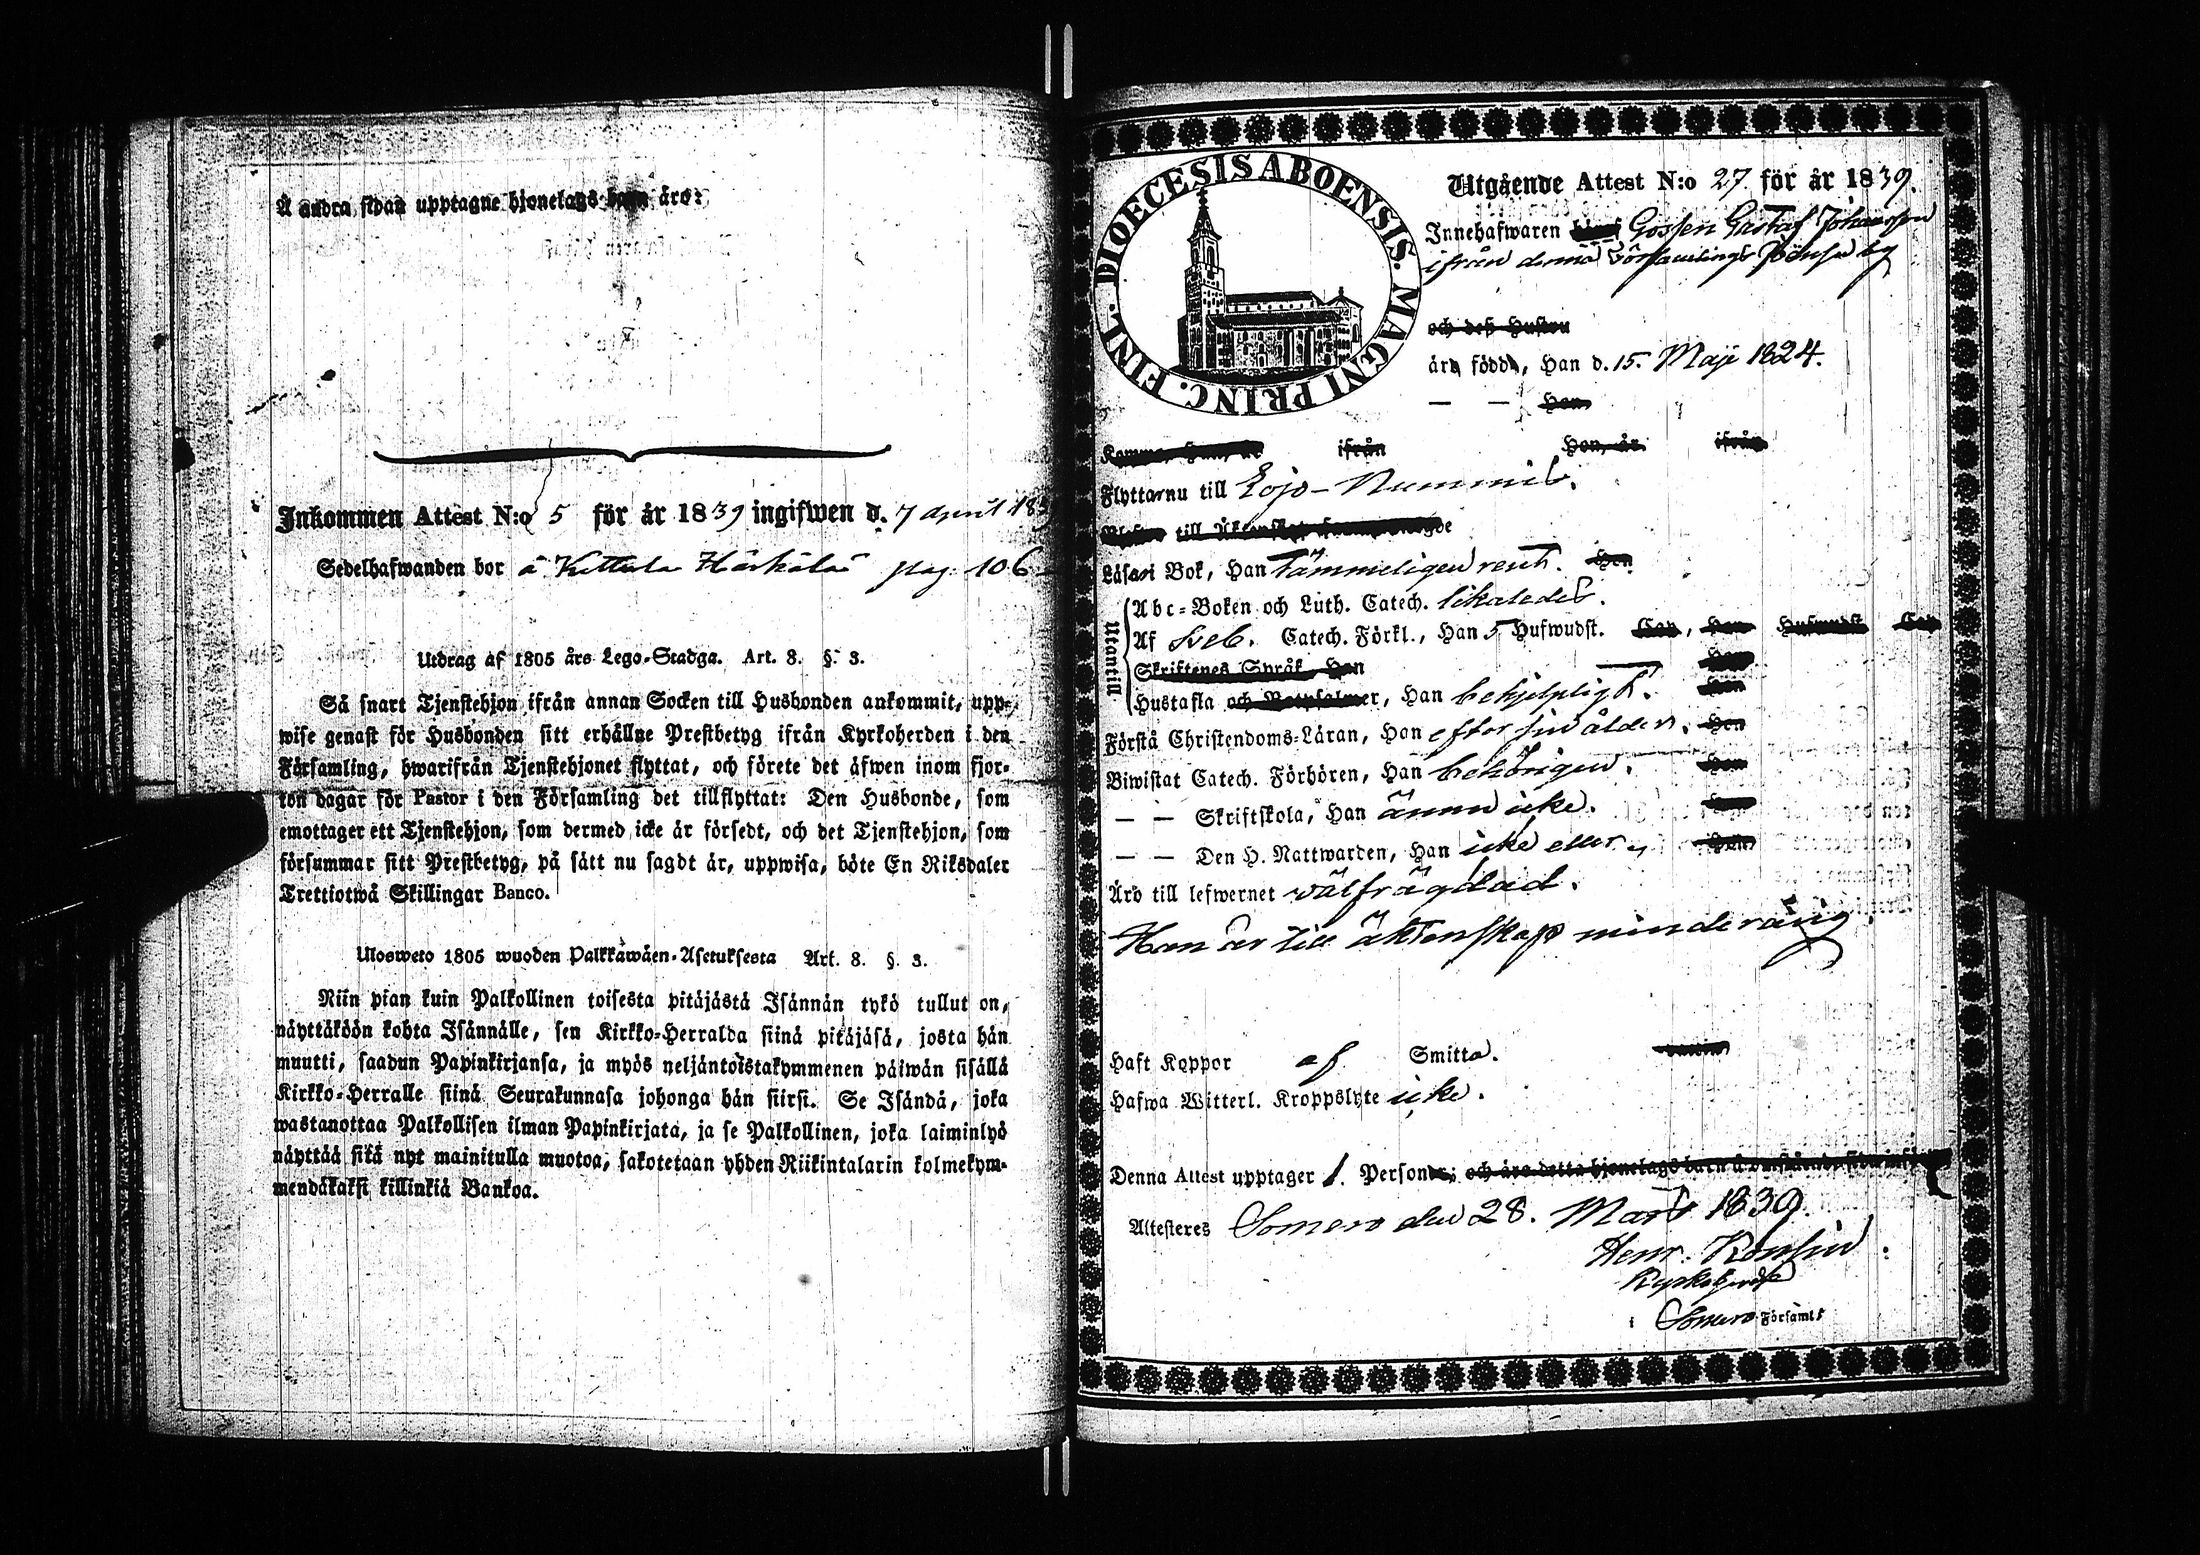 Å andra sidan upptagne hjonelags barn äro:
Inkommen Attest N:o 5 för år 1839 ingifwen d. 7 April 183
Sedelhafwanden bor å Kettula Härkälä pag. 106
Utdrag af 1805 års Lego-Stadga. Art. 8. §. 3.
Så snart Tjenstehjon ifrån annan Socken till Husbonden ankommit, upp-
wise genast för Husbonden sitt erhållne Prestbetyg ifrån Kyrkoherden i den
Församling, hwarifrån Tjenstehjonet flyttat, och förete det äfwen inom fjor-
ton dagar för Pastor i den Församling det tillflyttat: Den Husbonde, som
emottager ett Tjenstehjon, som dermed icke är försedt, och det Tjenstehjon, som
försummar sitt Prestbetyg, på sätt nu sagdt är, uppwisa, böte En Riksdaler
Trettiotwå Skillingar Banco.
Ulosweto 1805 wuoden Palkkawäen-Asetuksesta Art. 8. §. 3.
Niin pian kuin Palkollinen toisesta pitäjästä Isännän tykö tullut on,
näyttäköön kohta Isännälle, sen Kirkko-Herralda siinä pitäjäsä, josta hän
muutti, saadun Papinkirjansa, ja myös neljäntoistakymmenen päiwän sisällä
Kirkko-Herralle siinä Seurakunnasa johonga hän siirsi. Se Isändä, joka
wastanottaa Palkollisen ilman Papinkirjata, ja se Palkollinen, joka laiminlyö
näyttää sitä nyt mainitulla muotoa, sakotetaan yhden Riikintalarin kolmekym-
mendäkaksi killinkiä Bankoa.
DIOECESIS ABOENSIS. MAGNI PRINC. FINL.
Utgående Attest N:o 27 för år 1839.
Innehafwaren Gossen Gustaf Johansson
ifrån denna Församlings by
och dess Hustru
äro födde, Han d. 15. Maji 1824.
— — Hon
Komne, Han, år ifrån Hon, år ifrån
Flyttar nu till Lojo-Nummis.
till
Läsa i Bok, Han Tämmeligen rent. Hon
Utantill
Abc-Boken och Luth. Catech. likaledes.
Af Sveb. Catech. Förkl., Han 5 Hufwudst. Cap, Hon Hufwudst. Cap
Skriftenes Språk, Han Hon
Hustafla och Botpsalmer, Han behjelpligt. Hon
Förstå Christendoms-Läran, Han efter sin ålder. Hon
Biwistat Catech. Förhören, Han behörigen. Hon
— — Skriftskola, Han ännu icke. Hon
— — Den H. Nattwarden, Han icke eller, Hon
Äro till lefwernet wälfrägdad.
Han är till äktenskap minderårig.
Haft Koppor af Smitta.
Hafwa Witterl. Kroppslyte icke.
Denna Attest upptager 1. Person och äro detta hjonelags barn å
Attesteres Somero den 28. Mars 1839.
Henr.
Kyrkoherde
i Somero Förſaml.